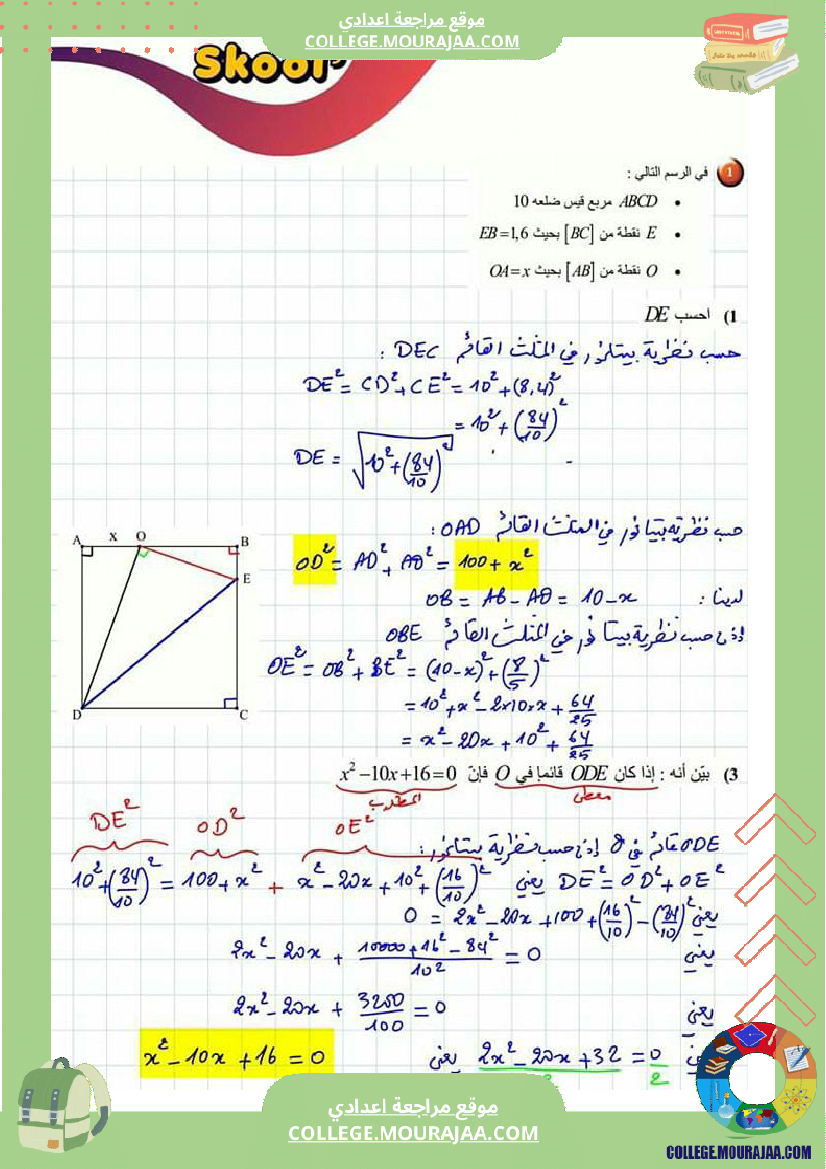 موقع مراجعة اعدادي
COLLEGE.MOURAJAA.COM
Skool
1 في الرسم التالي :
• ABCD مربع قيس ضلعه 10
• E نقطة من [BC] بحيث EB=1,6
• O نقطة من [AB] بحيث OA=x
1) احسب DE
حسب نظرية بيتاغور في المثلث القائم DEC :
DE² = CD² + CE² = 10² + (8,4)²
= 10² + (84/10)²
DE = √(10² + (84/10)²)
حسب نظرية بيتاغور في المثلث القائم OAD :
OD² = AD² + AO² = 100 + x²
لدينا : OB = AB - AO = 10 - x
إذن حسب نظرية بيتاغور في المثلث القائم OBE
OE² = OB² + BE² = (10-x)² + (8/5)²
= 10² + x² - 2×10×x + 64/25
= x² - 20x + 10² + 64/25
A x O B
E
D C
3) بيّن أنه : إذا كان ODE قائما في O فإنّ x²-10x+16=0
معطى المطلوب
DE² OD² OE²
ODE قائم في O إذن حسب نظرية بيتاغور :
DE² = OD² + OE² يعني 10² + (84/10)² = 100 + x² + x² - 20x + 10² + (16/10)²
يعني 0 = 2x² - 20x + 100 + (16/10)² - (84/10)²
يعني 2x² - 20x + (10000 + 16² - 84²)/10² = 0
يعني 2x² - 20x + 3200/100 = 0
يعني 2x² - 20x + 32 = 0/2 يعني x² - 10x + 16 = 0
موقع مراجعة اعدادي
COLLEGE.MOURAJAA.COM
COLLEGE.MOURAJAA.COM